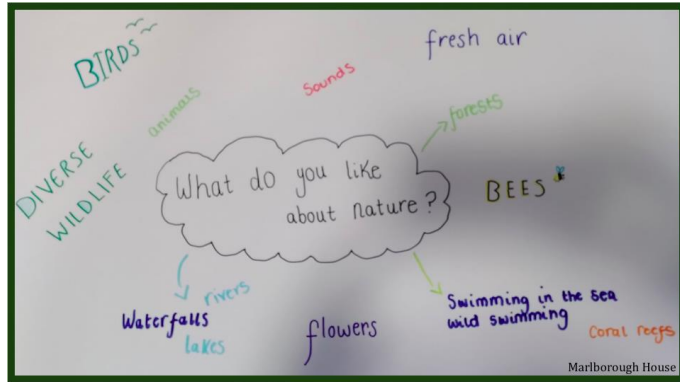 BIRDS
fresh air
Sounds
animals
forests
DIVERSE
WILDLIFE
What do you like
about nature?
BEES
rivers
Waterfalls
lakes
flowers
Swimming in the sea
wild swimming
Coral reefs
Marlborough House